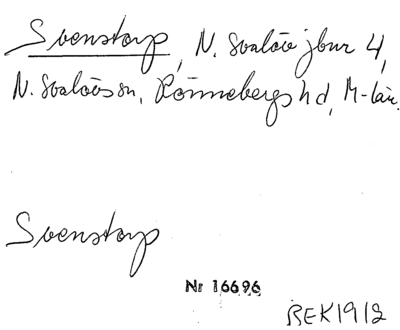 Svenstorp, N. Svalöv jbnr 4,
N. Svalövs sn, Rönnebergs hd, M-län.
Svenstorp
Nr 16696
BEK1912